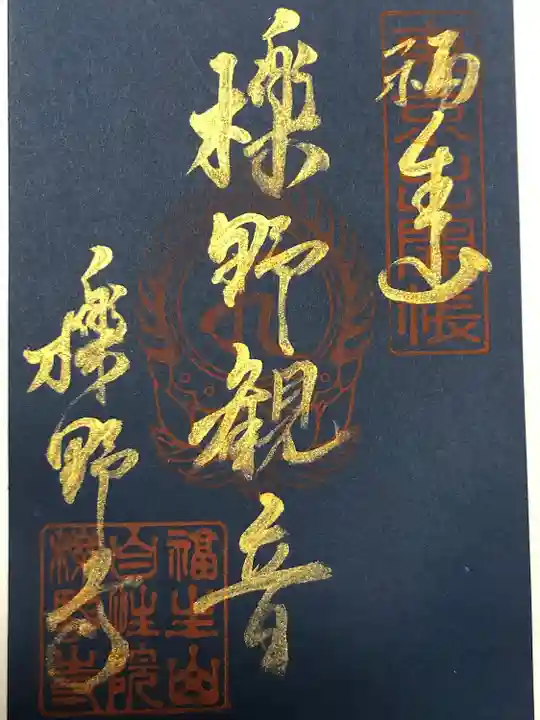 東京出開帳
福生山
櫟野観音
櫟野寺
福生山
自性院
櫟野寺